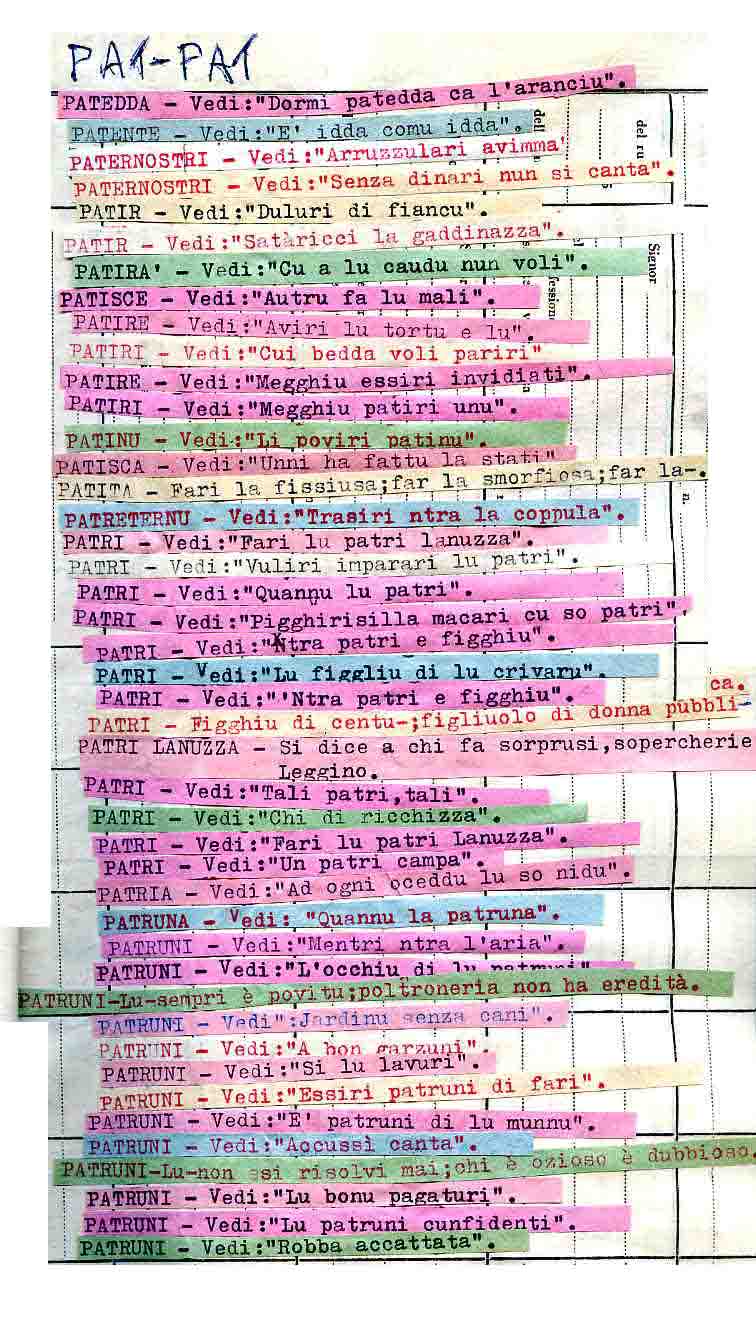 PAT-PAT
PATEDDA - Vedi:"Dormi patedda ca l'aranciu".
PATENTE - Vedi:"E' idda comu idda".
PATERNOSTRI - Vedi:"Arruzzulari avimma'
PATERNOSTRI - Vedi:"Senza dinari nun si canta".
PATIR - Vedi:"Duluri di fiancu".
PATIR - Vedi:"Satàricci la gaddinazza".
PATIRA' - Vedi:"Cu a lu caudu nun voli".
PATISCE - Vedi:"Autru fa lu mali".
PATIRE - Vedi:"Aviri lu tortu e lu".
PATIRI - Vedi:"Cui bedda voli pariri"
PATIRE - Vedi:"Megghiu essiri invidiati".
PATIRI - Vedi:"Megghiu patiri unu".
PATINU - Vedi:"Li poviri patinu".
PATISCA - Vedi:"Unni ha fattu la stati"
PATITA - Fari la fissiusa;far la smorfiosa;far la-.
PATRETERNU - Vedi:"Trasiri ntra la coppula".
PATRI - Vedi:"Fari lu patri lanuzza".
PATRI - Vedi:"Vuliri imparari lu patri".
PATRI - Vedi:"Quannu lu patri".
PATRI - Vedi:"Pigghirisilla macari cu so patri".
PATRI - Vedi:"Ntra patri e figghiu".
PATRI - Vedi:"Lu figgliu di lu crivaru".
PATRI - Vedi:"'Ntra patri e figghiu".
ca.
PATRI - Figghiu di centu-;figliuolo di donna pubbli-
PATRI LANUZZA - Si dice a chi fa sorprusi,sopercherie
Leggino.
PATRI - Vedi:"Tali patri,tali".
PATRI - Vedi:"Chi di ricchizza".
PATRI - Vedi:"Fari lu patri Lanuzza".
PATRI - Vedi:"Un patri campa".
PATRIA - Vedi:"Ad ogni oceddu lu so nidu".
PATRUNA - Vedi: "Quannu la patruna".
PATRUNI - Vedi:"Mentri ntra l'aria".
PATRUNI - Vedi:"L'occhiu di lu patruni"
PATRUNI-Lu-sempri è povitu;poltroneria non ha eredità.
PATRUNI - Vedi":Jardinu senza cani".
PATRUNI - Vedi:"A bon garzuni".
PATRUNI - Vedi:"Si lu lavuri".
PATRUNI - Vedi:"Essiri patruni di fari".
PATRUNI - Vedi:"E' patruni di lu munnu".
PATRUNI - Vedi:"Accussì canta".
PATRUNI-Lu-non ssi risolvi mai;chi è ozioso è dubbioso.
PATRUNI - Vedi:"Lu bonu pagaturi".
PATRUNI - Vedi:"Lu patruni cunfidenti".
PATRUNI - Vedi:"Robba accattata".
del ru
Signor